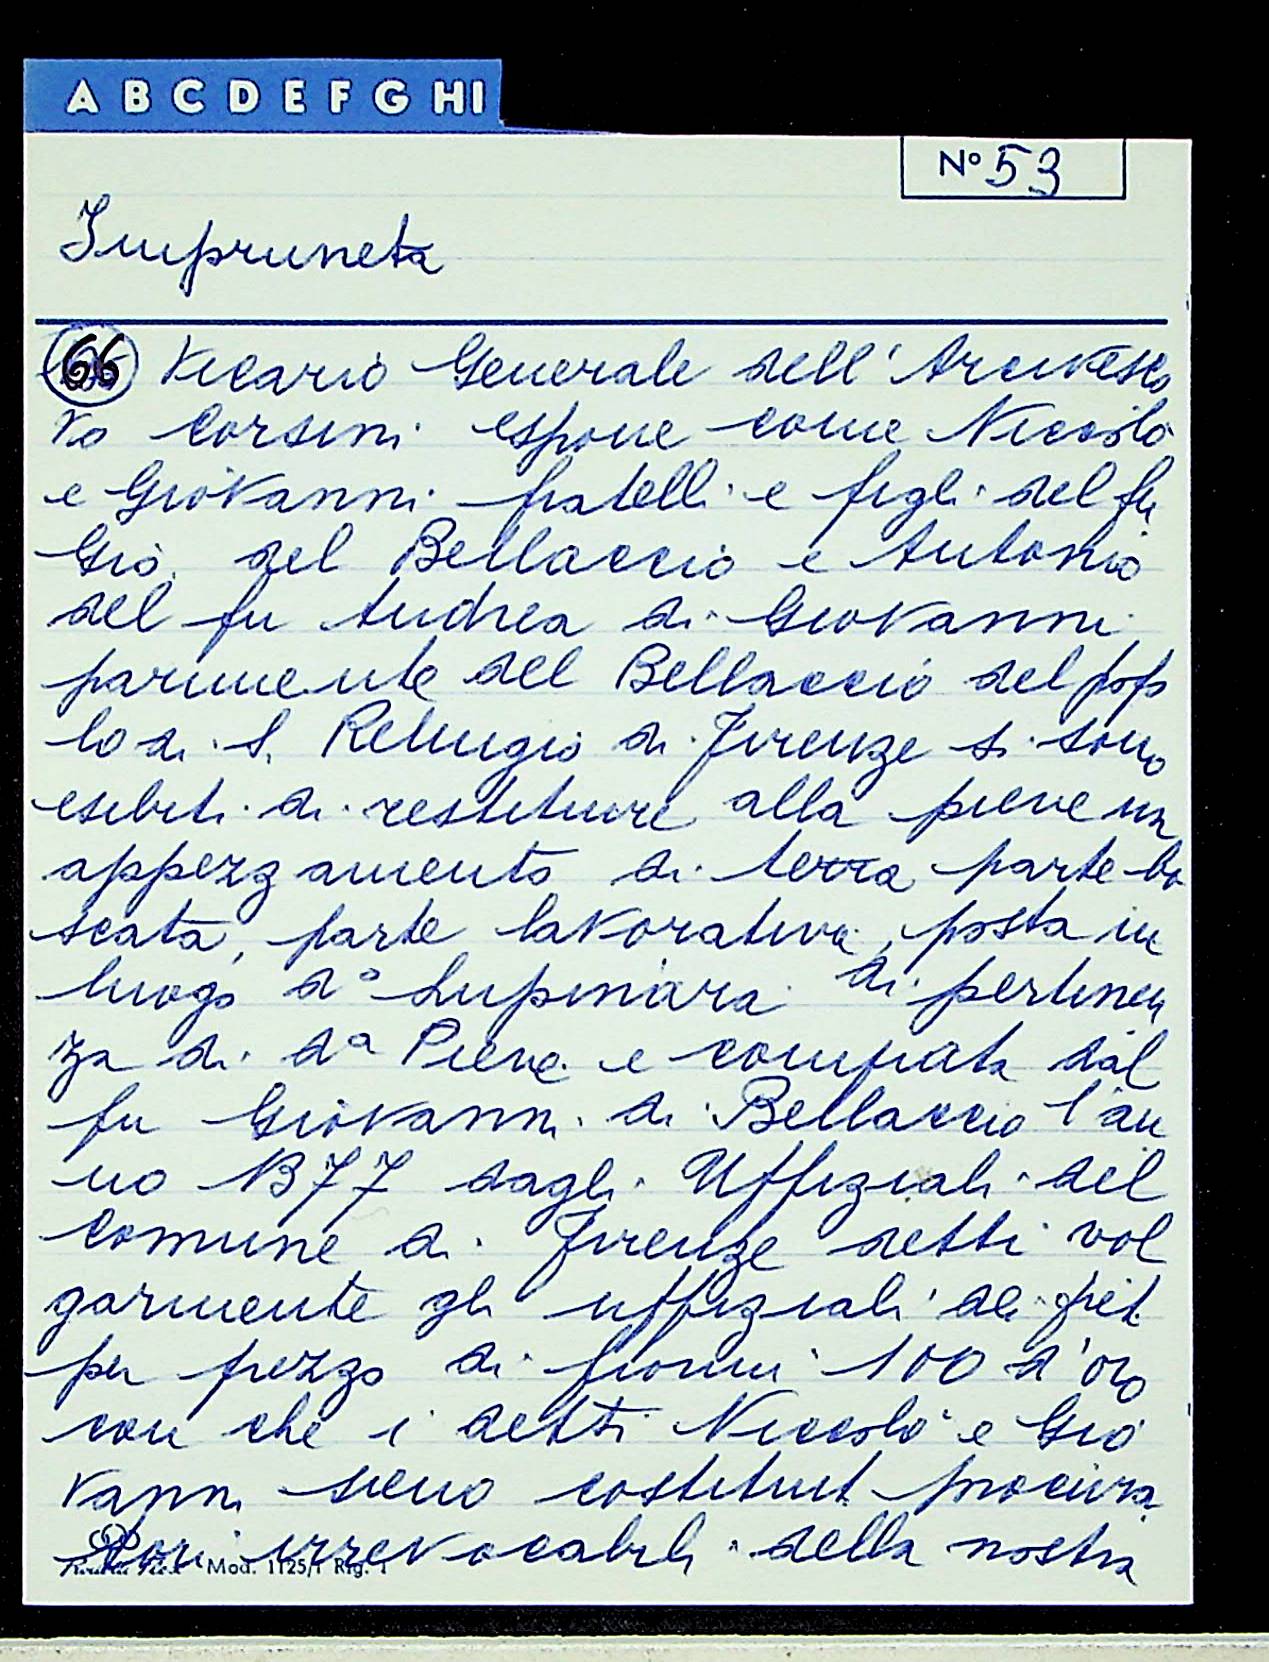 A B C D E F G HI
Nº 53
Impruneta
66 Vicario Generale dell' Arcivesco
vo Corsini espone come Niccolò
e Giovanni fratelli e figli del fu
Giò. del Bellaccio e Antonio
del fu Andrea di Giovanni
parimente del Bellaccio del popo
lo di S. Remigio di Firenze si sono
esibiti di restituire alla pieve un
appezzamento di terra parte bo
scata, parte lavorativa, posta in
luogo dº Lupinara di pertinen
za di dª Pieve e comprata dal
fu Giovanni di Bellaccio l'an
no 1377 dagli Uffiziali del
Comune di Firenze detti vol
garmente gli uffiziali de
per prezzo di fiorini 100 d'oro
con che i detti Niccolò e Gio
vanni sieno costituiti procura
tori irrevocabili della nostra
Mod. 1125/1 Rig. 1